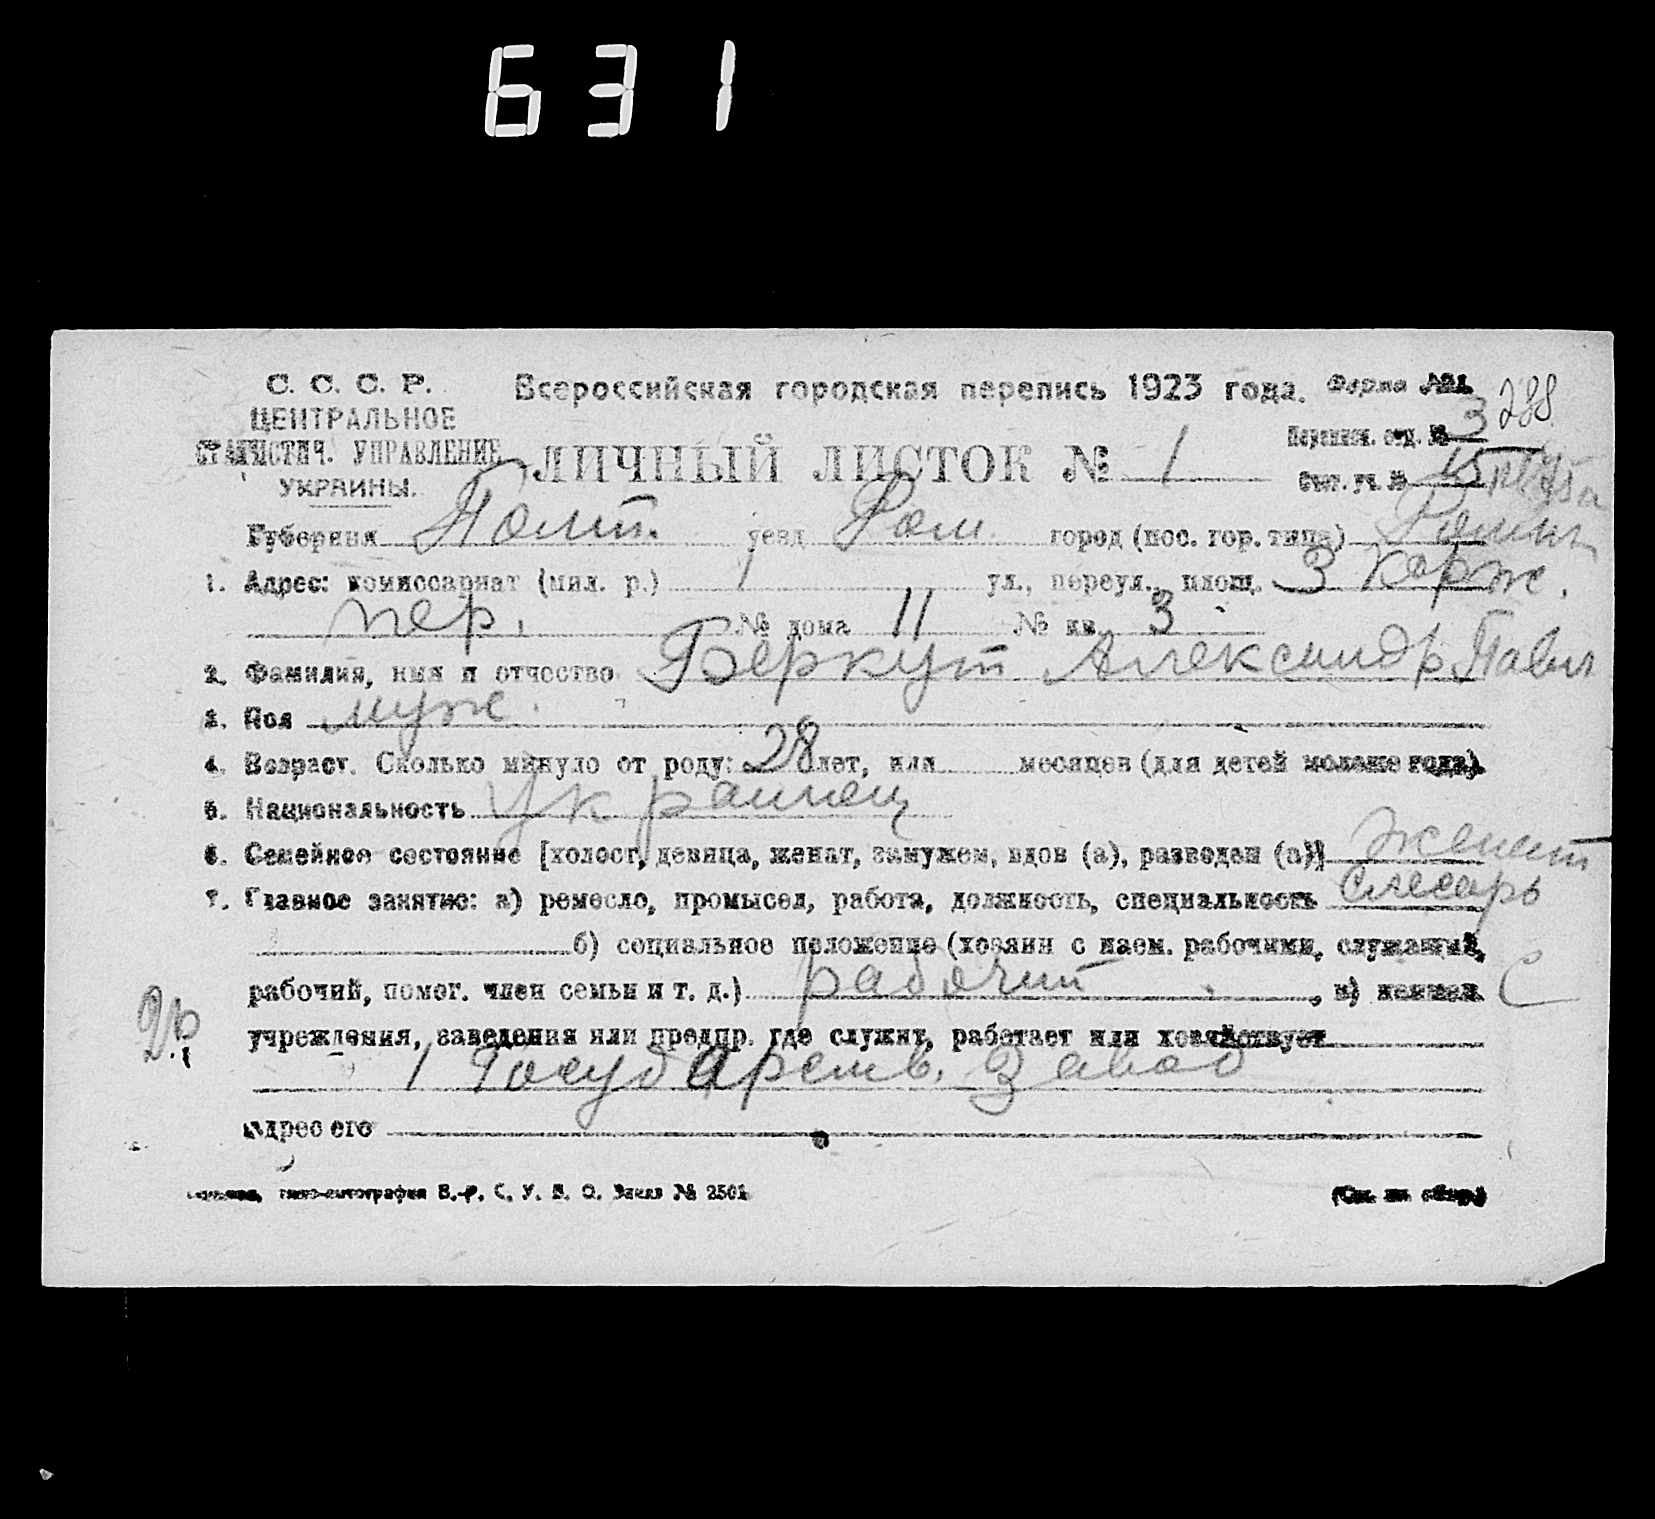 631
С. С. С. Р.
ЦЕНТРАЛЬНОЕ
СТАТИСТИЧ. УПРАВЛЕНИЕ
УКРАИНЫ.
Всероссийская городская перепись 1923 года. Форма №1.
288
Переписн. отд. № 3
ЛИЧНЫЙ ЛИСТОК № 1
Счет. уч. № 15
Губерния Полт. уезд Ром. город (пос. гор. типа) Ромны
1. Адрес: комиссариат (мил. р.) 1 ул., переул., площ. 3 Корж.
пер. № дома 11 № кв. 3
2. Фамилия, имя и отчество Беркут Александр Павл
3. Пол муж.
4. Возраст. Сколько минуло от роду: 28 лет, или месяцев (для детей моложе года).
5. Национальность Украинец
6. Семейное состояние [холост, девица, женат, замужем, вдов (а), разведен (а)] женат
7. Главное занятие: а) ремесло, промысел, работа, должность, специальность слесарь
б) социальное положение (хозяин с наем. рабочими, служащий,
рабочий, помог. член семьи и т. д.) рабочий, в) наимен. С
учреждения, заведения или предпр. где служит, работает или хозяйствует
1 Государств. Завод
адрес его
типо-литография В.-Р. С. У. В. О. Заказ № 2501
(См. на обор.)